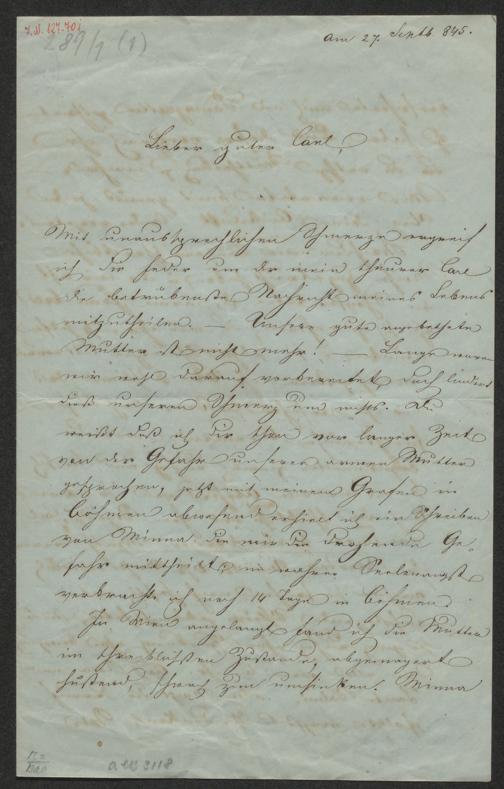 I.N. 127.701
289/1 (1)
am 27. Septb 845.
Lieber guter Carl,
Mit unaussprechlichen Schmerze ergreif
ich die Feder um dir mein theurer Carl
die betrübenste Nachricht meines Lebens
mitzutheilen. — Unsere gute angebethete
Mutter ist nicht mehr! — Lange waren
wir wohl darauf vorbereitet doch lindert
dieß unseren Schmerz um nichts. Du
weißt daß ich dir schon vor langer Zeit
von der Gefahr unserer armen Mutter
gesprochen, jetzt mit meinem Grafen in
Böhmen abwesend erhielt ich ein Schreiben
von Minna die mir die drohende Ge-
fahr mittheilt, in wahrer Seelenangst
verbrachte ich noch 14 Tage in Böhmen.
In Wien angelangt fand ich die Mutter
im Zustande, abgemagert
hustend, schwach zum umsinken. Minna